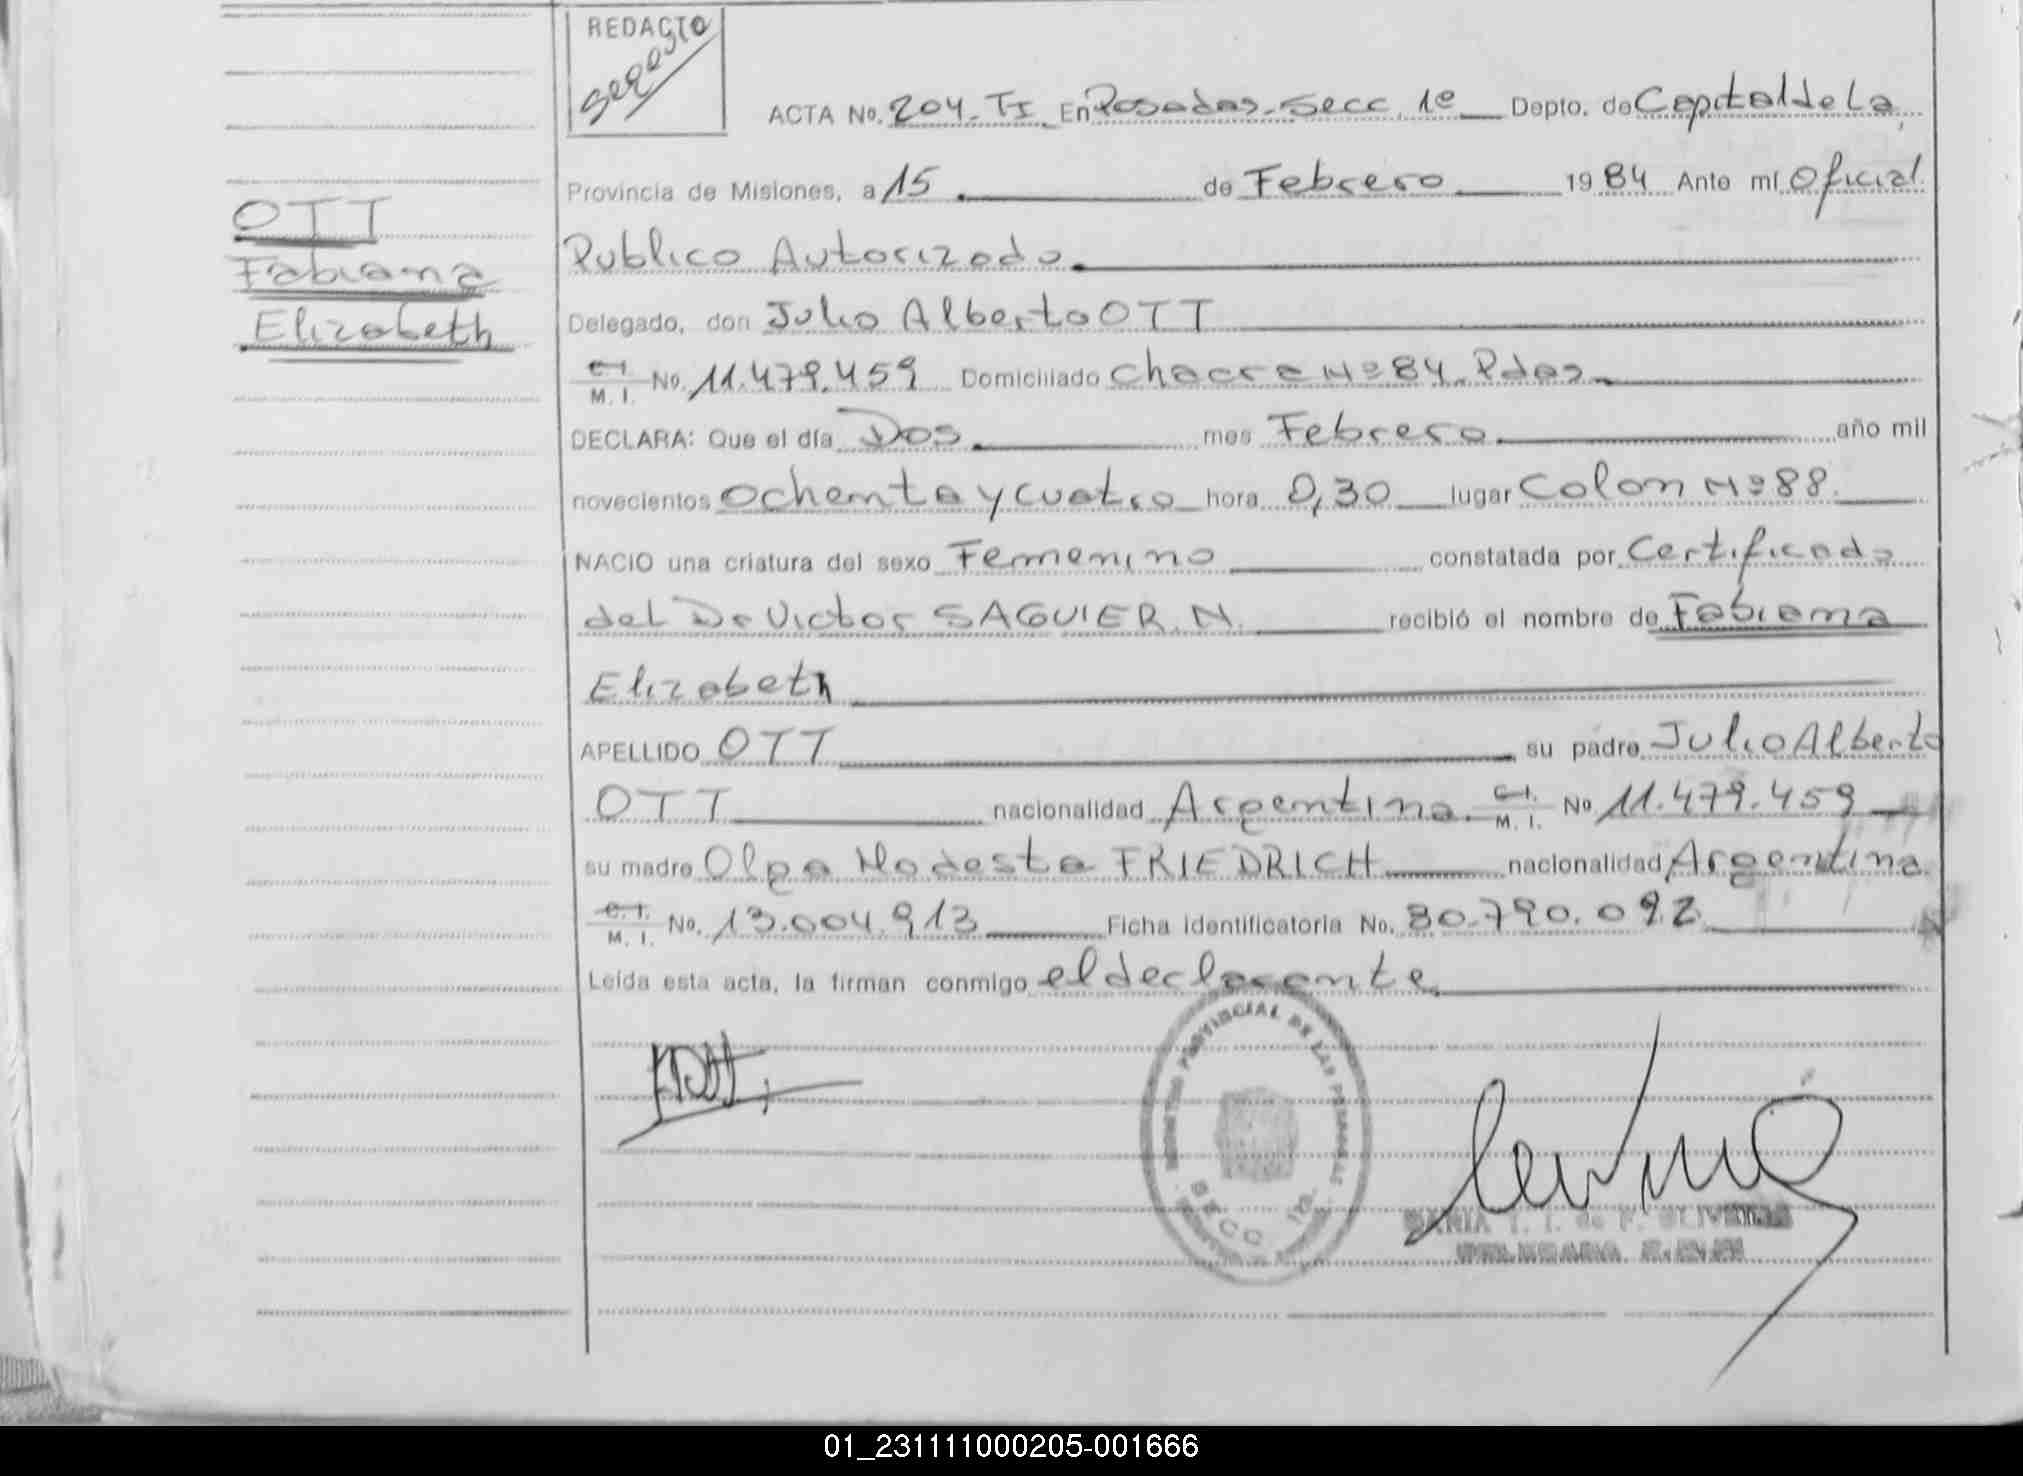 REDACTO
ACTA No. 204. TI En Posadas. Secc. 1º Depto. de Capital de La
Provincia de Misiones, a 15 de Febrero 1984 Ante mí Oficial
Publico Autorizado.
OTT
Fabiana
Elizabeth
Delegado, don Julio Alberto OTT
C.I. M.I. No. 11.479.459 Domiciliado Chacra Nº 84. Pdas.
DECLARA: Que el día Dos. mes Febrero. año mil
novecientos ochenta y cuatro hora 0,30 lugar Colon Nº 88.
NACIO una criatura del sexo Femenino constatada por Certificado
del Dr Victor SAGUIER. N. recibió el nombre de Fabiana
Elizabeth
APELLIDO OTT su padre Julio Alberto
OTT nacionalidad Argentina. C.I. M.I. No 11.479.459
su madre Olga Modesta FRIEDRICH nacionalidad Argentina.
C.I. M.I. No. 13.004.913 Ficha identificatoria No. 30.790.092
Leída esta acta, la firman conmigo el declarante.
PROVINCIAL DE LAS PERSONAS
SECC 1a.
01_231111000205-001666